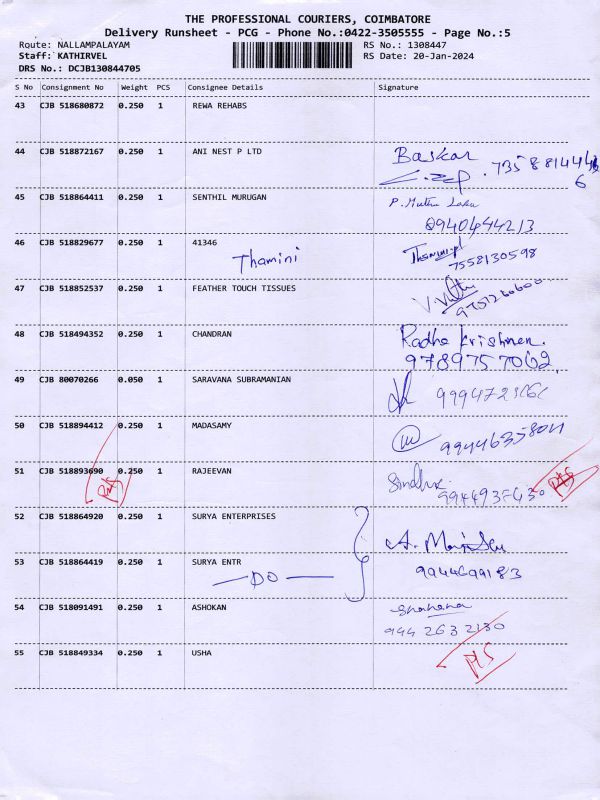 THE PROFESSIONAL COURIERS, COIMBATORE
Delivery Runsheet - PCG - Phone No.:0422-3505555 - Page No.:5
Route: NALLAMPALAYAM RS No.: 1308447
Staff: KATHIRVEL RS Date: 20-Jan-2024
DRS No.: DCJB130844705
S No Consignment No Weight PCS Consignee Details Signature
43 CJB 518680872 0.250 1 REWA REHABS
44 CJB 518872167 0.250 1 ANI NEST P LTD Baskar
45 CJB 518864411 0.250 1 SENTHIL MURUGAN P. Muthu
9940444213
46 CJB 518829677 0.250 1 41346
Thamini 7558130598
47 CJB 518852537 0.250 1 FEATHER TOUCH TISSUES
48 CJB 518494352 0.250 1 CHANDRAN Radha Krishnan.
9789757062
49 CJB 80070266 0.050 1 SARAVANA SUBRAMANIAN
50 CJB 518894412 0.250 1 MADASAMY
51 CJB 518893690 0.250 1 RAJEEVAN Sindhu
52 CJB 518864920 0.250 1 SURYA ENTERPRISES
53 CJB 518864419 0.250 1 SURYA ENTR
DO 9944699183
54 CJB 518091491 0.250 1 ASHOKAN Shahana
944 2632130
55 CJB 518849334 0.250 1 USHA